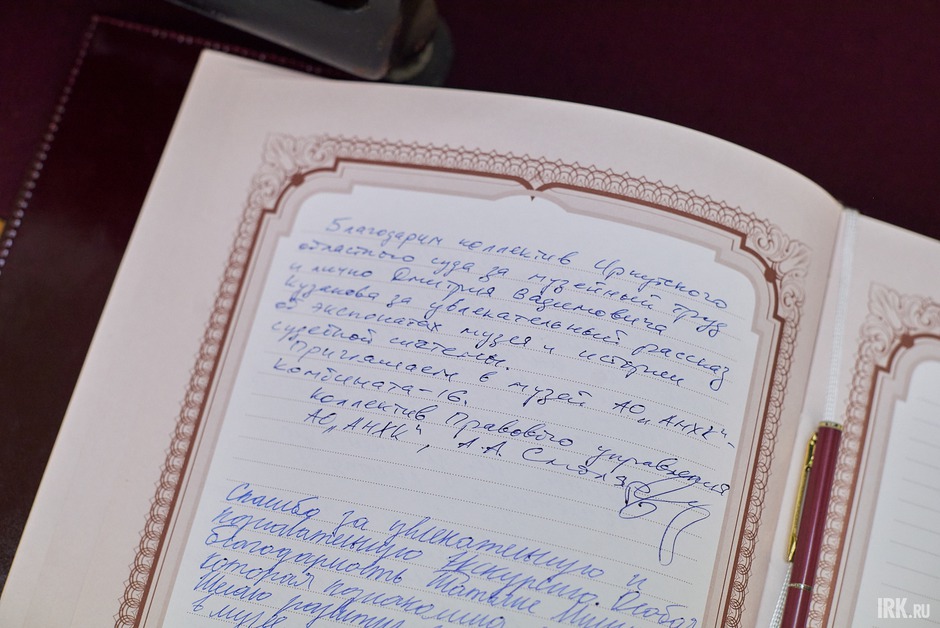 Благодарим коллектив Иркутского
областного суда за музейный труд
и лично Дмитрия Вадимовича
Кузакова за увлекательный рассказ
об экспонатах музея и истории
судебной системы.
Приглашаем в музей АО „АНХК" -
комбината-16.
Коллектив Правового управления
АО „АНХК", А.А. 
Спасибо за увлекательную и
познавательную экскурсию. Особая
благодарность Татьяне
которая познакомила
в музее
IRK.RU